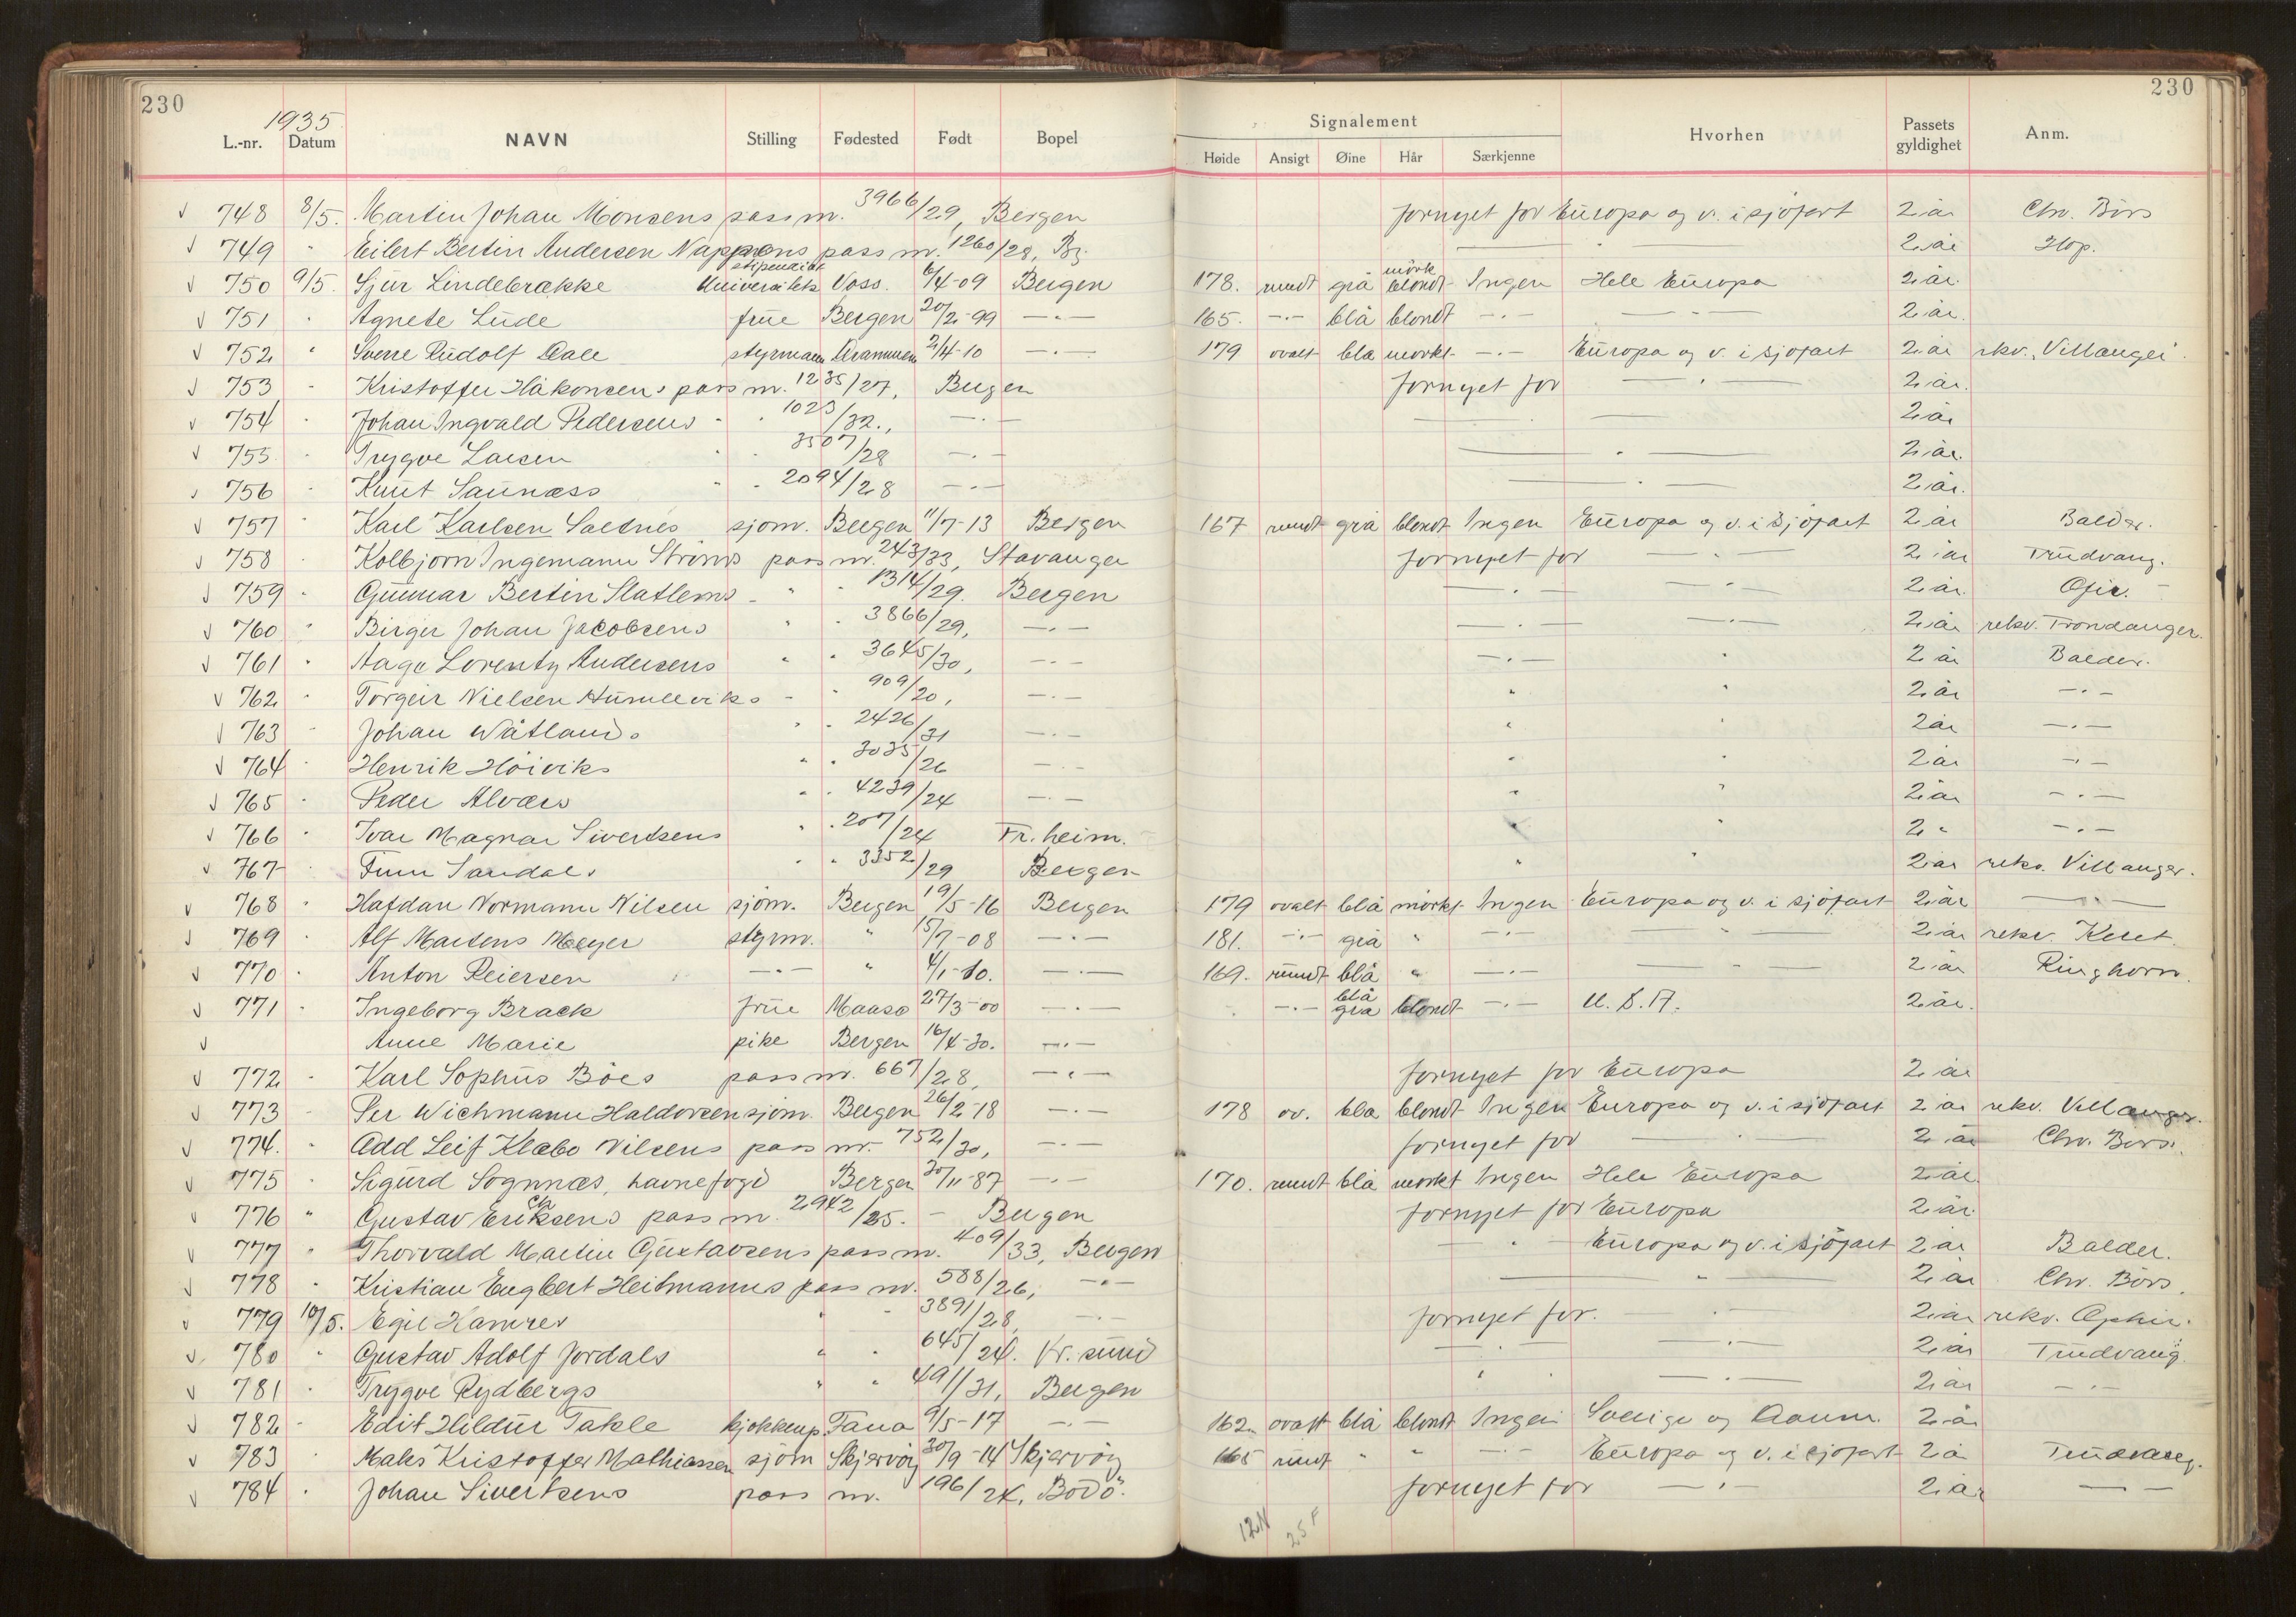 230 230
1935
L.-nr. Datum NAVN Stilling Fødested Født Bopel Signalement Hvorhen Passets gyldighet Anm.
Høide Ansigt Øine Hår Særkjenne
√ 748 8/5. Martin Johan Monsens pass nr. 3966/29, Bergen fornyet for Europa og v. i sjöfart 2 år Chr. Börs
√ 749 " Eilert Bertin Andersen Nappens pass nr. 1260/28, Bg. — " — 2 år Hop.
√ 750 9/5. Sjur Lindebrække Universitets stipendiat Voss. 6/4-09 Bergen 178. rundt grå mörk blondt Ingen Hele Europa 2 år.
√ 751 " Agnete Lude frue Bergen 20/2-99 —"— 165. —"— blå blondt —"— —"— 2 år.
√ 752 " Sverre Rudolf Dale styrmann Drammen 2/4-10 —"— 179 ovalt blå mörkt —"— Europa og v. i sjöfart 2 år rekv. Villanger.
√ 753 " Kristoffer Håkonsens pass nr. 1235/27, Bergen fornyet for —"— 2 år.
√ 754 " Johan Ingvald Pedersens " " 1023/32., —"— — " — 2 år
√ 755 " Trygve Larsen " " 3507/28 —"— — " — 2 år.
√ 756 " Knut Saunæss " " 2094/28 —"— — " — 2 år.
√ 757 " Karl Karlsen Saltnes sjöm. Bergen 11/7-13 Bergen 167 rundt grå blondt Ingen Europa og v. i sjöfart 2 år Balder.
√ 758 " Kolbjörn Ingemann Ströms pass nr. 243/33, Stavanger fornyet for —"— 2 år Trudvang.
√ 759 " Gunnar Bertin Slatlems " " 1314/29. Bergen —"— —"— 2 år. Ofir.
√ 760 " Birger Johan Jacobsens " " 3866/29, —"— —"— —"— 2 år rekv. Trondanger.
√ 761 " Aage Lorentz Andersens " " 3645/30, —"— —"— " 2 år Balder.
√ 762 " Torgeir Nielsen Humleviks " " 909/20, —"— " " 2 år —"—
√ 763 " Johan Wåtlands " " 2426/31 —"— " " 2 år —"—
√ 764 " Henrik Höiviks " " 3035/26 —"— " " 2 år —"—
√ 765 " Peder Alværs " " 4239/24 —"— " " 2 år —"—
√ 766 " Ivar Magnar Sivertsens " " 207/24 Tr. heim. " " 2 " —"—
√ 767 " Finn Sandals " " 3352/29 Bergen " " 2 år rekv. Villanger.
√ 768 " Hafdan Normann Nilsen sjöm. Bergen 19/5-16 Bergen 179 ovalt blå mörkt Ingen Europa og v. i sjöfart 2 år —"—
√ 769 " Alf Martens Meyer styrm. " 15/7-08 —"— 181. —"— grå " —"— —"— 2 år rekv. Keret.
√ 770 " Anton Reiersen —"— " 4/1-10. —"— 169. rundt blå " —"— —"— 2 år Ringhorn.
√ 771 " Ingeborg Brack frue Maasø 27/3-00 —"— —"— blå grå blondt —"— U.S.A. 2 år.
√ Anne Marie pike Bergen 16/4-30. —"—
√ 772 " Karl Sophus Böes pass nr. 667/28, —"— fornyet for Europa 2 år
√ 773 " Per Wichmann Haldorsen sjöm. Bergen 26/2-18 —"— 178 ov. blå blondt Ingen Europa og v. i sjöfart 2 år rekv. Villanger.
√ 774. " Odd Leif Klæbo Nilsens pass nr. 752/30, —"— fornyet for —"— 2 år Chr. Börs.
√ 775 " Sigurd Sognnæs, havnefogd Bergen 30/11-87 —"— 170. rundt blå mörkt Ingen Hele Europa 2 år.
√ 776 " Gustav Eriksens pass nr. 2942/25. — Bergen fornyet for Europa 2 år.
√ 777 " Thorvald Martin Gustavsens pass nr. 409/33, Bergen — " — Europa og v. i sjöfart 2 år Balder.
√ 778 " Kristian Engbert Heitmanns pass nr. 588/26, —"— — " — 2 år Chr. Börs.
√ 779 10/5. Egil Hamres " " 3891/28, —"— fornyet for. —"— 2 år rekv. Ophir.
√ 780 " Gustav Adolf Jordals " " 645/24. Kr. sund —"— —"— 2 år Trudvang.
√ 781 " Trygve Rydbergs " " 4911/31, Bergen " —"— 2 år —"—
√ 782 " Edit Hildur Takle kjökkenp. Fana 9/5-17 —"— 162. ovalt blå blondt Ingen Sverige og Danm. 2 år
√ 783 " Males Kristoffer Mathiassen sjöm Skjervöy 30/9-14 Skjervöy 165 rundt " " —"— Europa og v. i sjöfart 2 år Trudvang.
√ 784 " Johan Sivertsens pass nr. 196/24, Bodö. fornyet for —"— 2 år — —
12N 25F